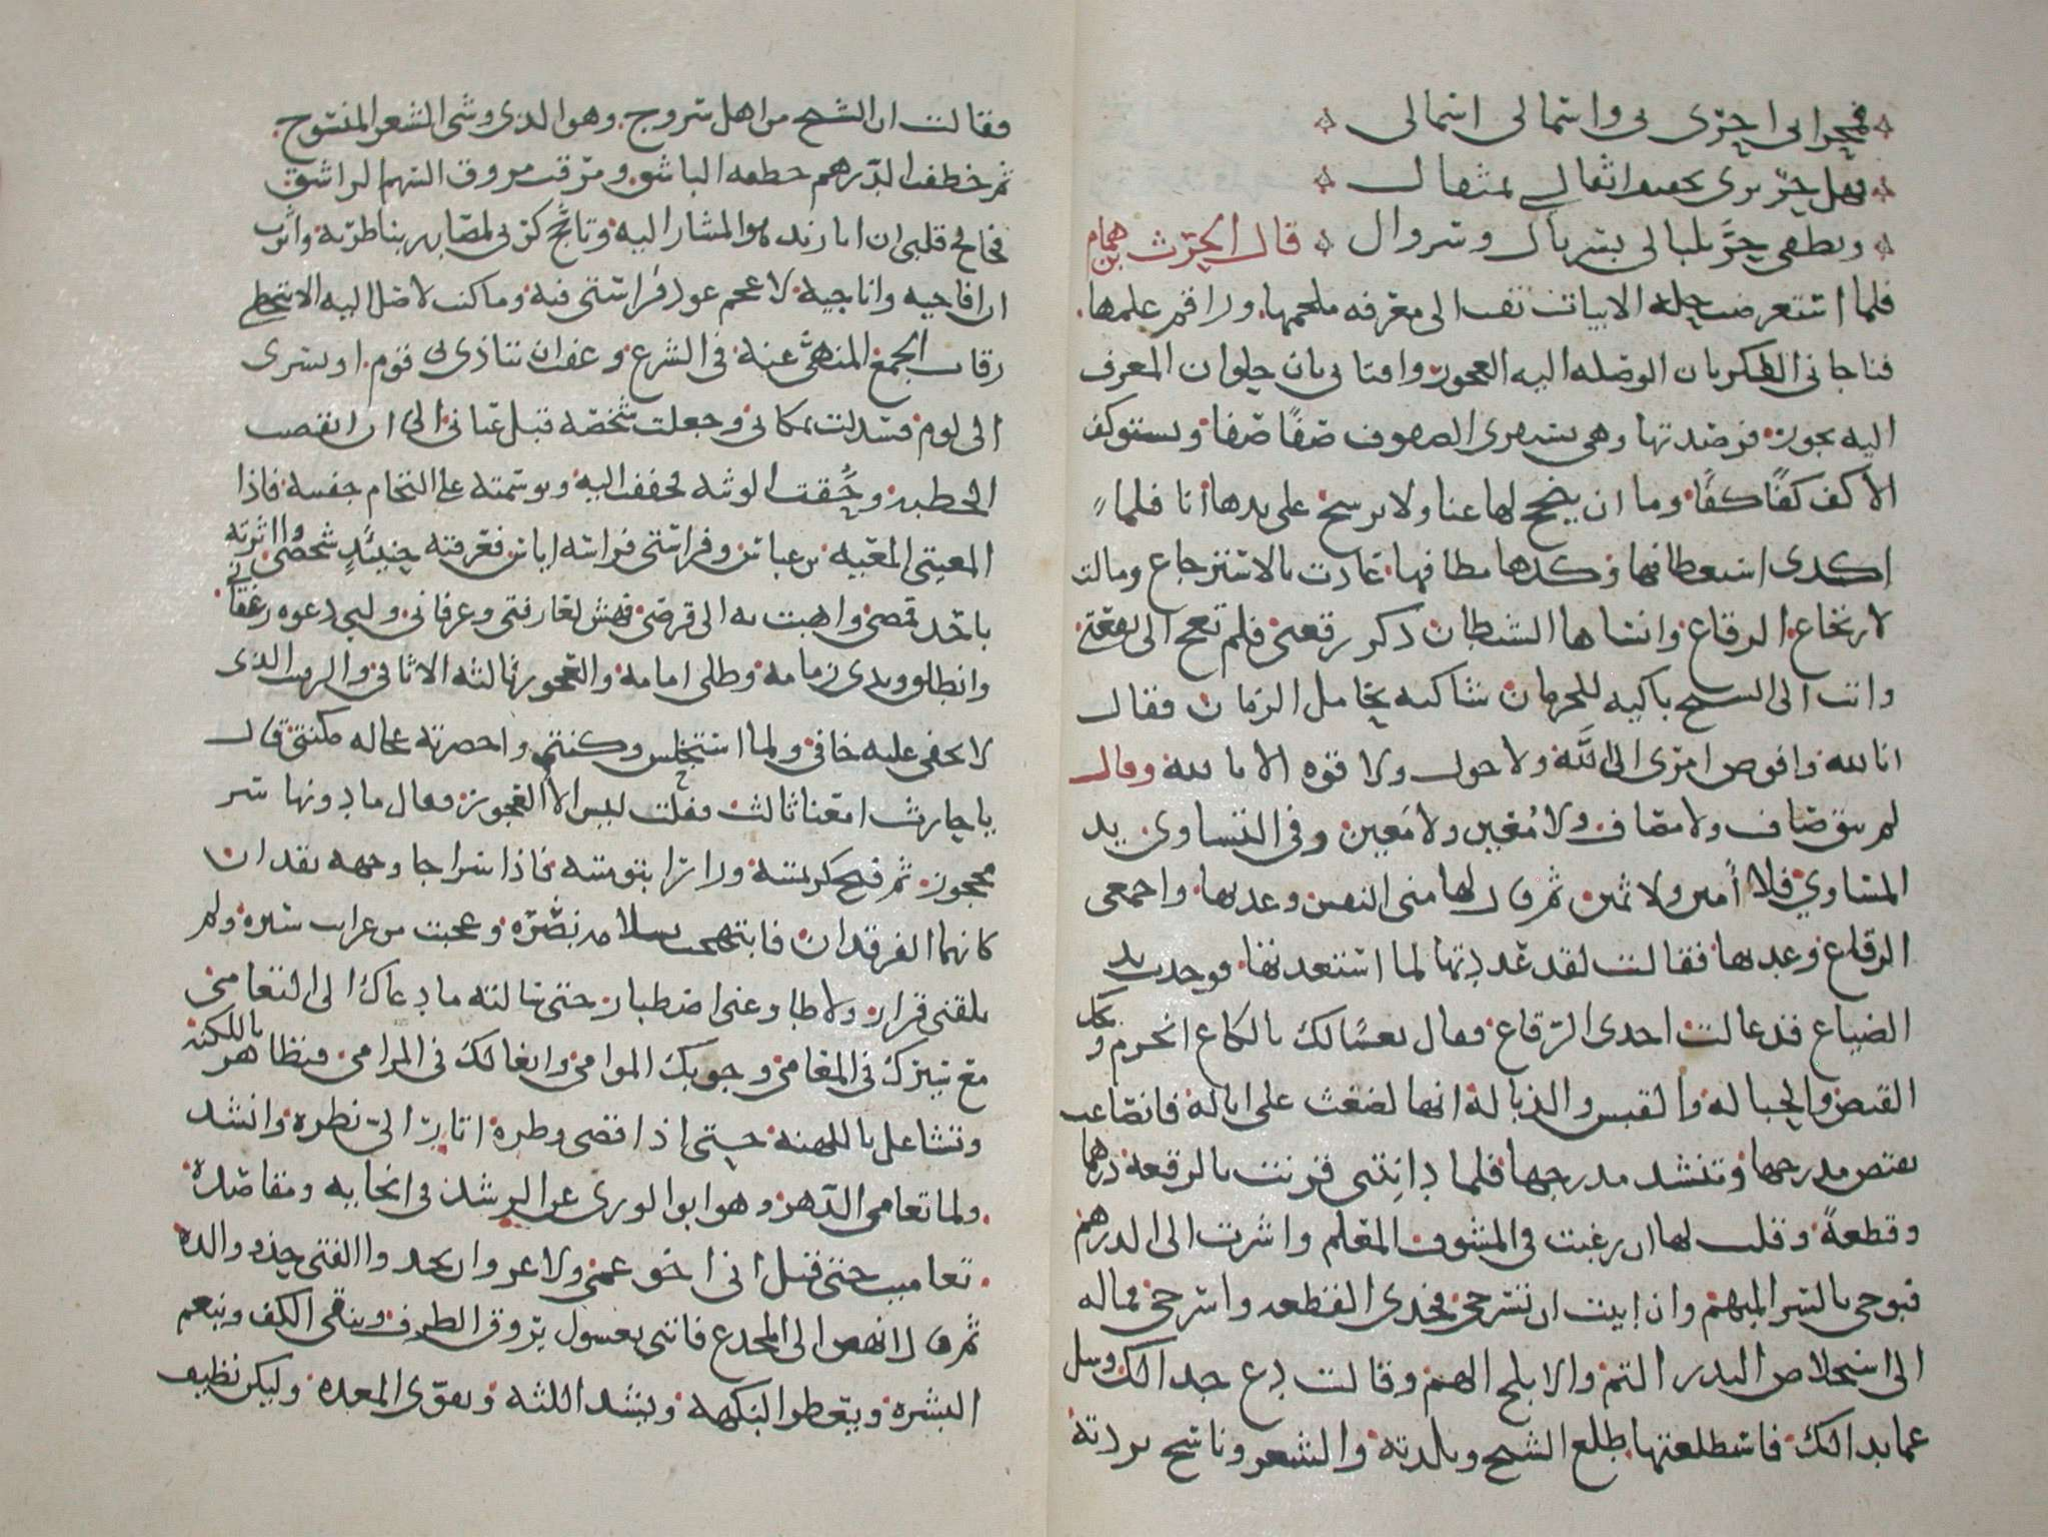 فمحرابي احرى بي واسمالي اسمى لي
فهل حر يرى تخفيف اثقالي بمثقال
ويطفي حر بلبالي بسربال وسروال قال الحرث بن همام
فلما استعرضت حلة الابيات تقت الى معرفة ملحمها وراقم علمها
فناجاني الفكر بان الوصلة اليه العجوز وافتاني بان حلوان المعرف
اليه يجوز فرصدتها وهي تستقري الصفوف صفا صفا وتستوكف
الاكف كفا كفا وما ان ينجح لها عنا ولا يرشح على يدها انا فلما
اكدى استعطافها وكدها مطافها عاذت بالاسترجاع ومالت
لارتجاع الرقاع وانساها الشيطان ذكر رقعتي فلم تعج الى بقعتي
وانت الى الشيخ باكية للحرمان شاكية تحامل الزمان فقال
انا لله وافوض امري الى الله ولا حول ولا قوة الا بالله وقال
لم يبق صاف ولا مصاف ولا معين ولا معين وفي التساوي بد
المساوي فلا امين ولا ثمين ثم قال لها مني النفس وعديها واجمعي
الرقاع وعديها فقالت لقد عددتها لما استعدتها فوجدت يد
الضياع قد غالت احدى الرقاع فقال تعسا لك يا لكاع انحرم ويحك
القنص والحبالة والقبس والذبالة انها لضغث على ابالة فانصاعت
تقتص مدرجها وتنشد مدرجها فلما دانتني قرنت بالرقعة درهما
وقطعة وقلت لها ان رغبت في المشوف المعلم واشرت الى الدرهم
فبوحي بالسر المبهم وان ابيت ان تشرحي فخذي القطعة واسرحي فمالت
الى استخلاص البدر التم والابلج الهم وقالت دع جدالك وسل
عما بدا لك فاستطلعتها طلع الشيخ وبلدته والشعر وناسج بردته
فقالت ان الشيخ من اهل سروج وهو الذي وشى الشعر المنسوج
ثم خطفت الدرهم خطفة الباشق ومرقت مروق السهم الراشق
فخالج قلبي ان ابا زيد هو المشار اليه وتاجج كربي لمصابه بناظريه واثرت
ان افاجيه واناجيه لاعجم عود فراستي فيه وما كنت لاصل اليه الا بتخطي
رقاب الجمع المنهي عنه في الشرع وعفت ان يتاذى بي قوم او يسري
الي لوم فسدكت بمكاني وجعلت شخصه قيد عياني الى ان انقضت
الخطبة وحقت الوثبة فخففت اليه وتوسمته على التحام جفنيه فاذا
المعيتي المعية بن عباس وفراستي فراسة اياس فعرفته حينئذ شخصي واثرته
باحد قمصي واهبت به الى قرصي فهش لعارفتي وعرفاني ولبى دعوة رغفاني
وانطلق ويدي زمامه وظلي امامه والعجوز ثالثة الاثافي والرقيب الذي
لا يخفى عليه خافي ولما استحلس وكنتي واحضرته عجالة مكنتي قال
يا حارث امعنا ثالث فقلت ليس الا العجوز فقال ما دونها سر
محجوز ثم فتح كريمتيه ورارا بتوءمتيه فاذا سراجا وجهه يقدان
كانهما الفرقدان فابتهجت بسلامة بصره وعجبت من غرايب سيره ولم
يلقني قرار ولا طاوعني اصطبار حتى سالته ما دعاك الى التعامي
مع سيرك في المعامي وجوبك الموامي وايغالك في المرامي فتظاهر باللكنة
وتشاغل باللهنة حتى اذا قضى وطره اتار الي نظره وانشد
ولما تعامى الدهر وهو ابو الورى عن الرشد في انحايه ومقاصده
تعاميت حتى قيل اني اخو عمى ولا غرو ان يحذو الفتى حذو والده
ثم قال انهض الى المخدع فاتني بغسول يروق الطرف وينقي الكف وينعم
البشرة ويعطر النكهة ويشد اللثة ويقوي المعدة وليكن نظيف